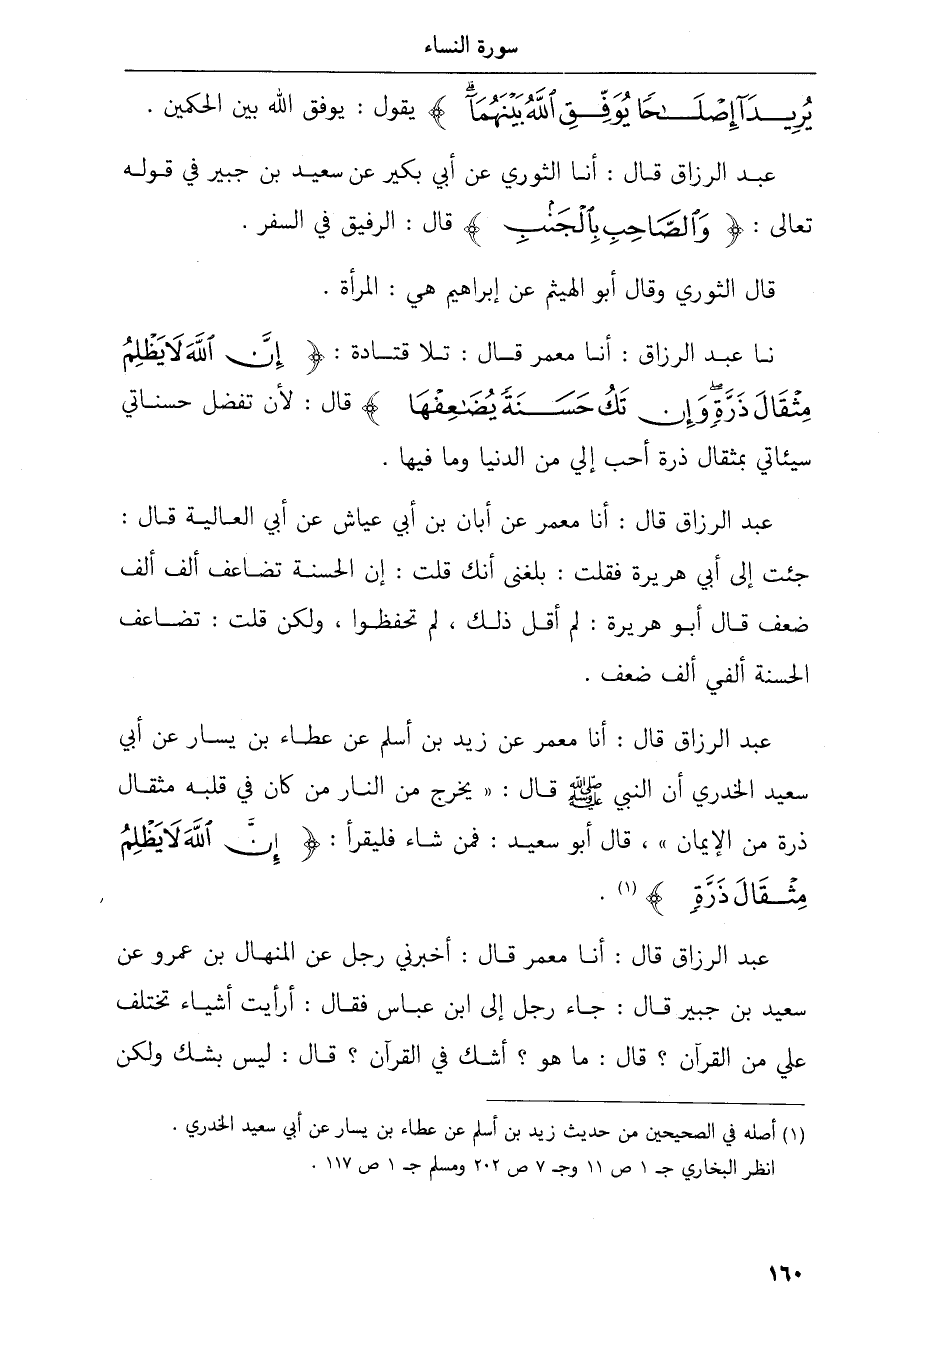 سورة النساء
يُرِيدَآ إِصْلَـٰحًا يُوَفِّقِ ٱللَّهُ بَيْنَهُمَآ ﴾ يقول : يوفق الله بين الحكمين .
عبد الرزاق قال : أنا الثوري عن أبي بكير عن سعيد بن جبير في قوله
تعالى : ﴿ وَٱلصَّاحِبِ بِٱلْجَنۢبِ ﴾ قال : الرفيق في السفر .
قال الثوري وقال أبو الهيثم عن إبراهيم هي : المرأة .
نا عبد الرزاق : أنا معمر قال : تلا قتادة : ﴿ إِنَّ ٱللَّهَ لَا يَظْلِمُ
مِثْقَالَ ذَرَّةٍ ۖ وَإِن تَكُ حَسَنَةً يُضَـٰعِفْهَا ﴾ قال : لأن تفضل حسناتي
سيئاتي بمثقال ذرة أحب إلي من الدنيا وما فيها .
عبد الرزاق قال : أنا معمر عن أبان بن أبي عياش عن أبي العالية قال :
جئت إلى أبي هريرة فقلت : بلغنى أنك قلت : إن الحسنة تضاعف ألف ألف
ضعف قال أبو هريرة : لم أقل ذلك ، لم تحفظوا ، ولكن قلت : تضاعف
الحسنة ألفي ألف ضعف .
عبد الرزاق قال : أنا معمر عن زيد بن أسلم عن عطاء بن يسار عن أبي
سعيد الخدري أن النبي ﷺ قال : « يخرج من النار من كان في قلبه مثقال
ذرة من الإيمان » ، قال أبو سعيد : فمن شاء فليقرأ : ﴿ إِنَّ ٱللَّهَ لَا يَظْلِمُ
مِثْقَالَ ذَرَّةٍ ﴾ (١) .
عبد الرزاق قال : أنا معمر قال : أخبرني رجل عن المنهال بن عمرو عن
سعيد بن جبير قال : جاء رجل إلى ابن عباس فقال : أرأيت أشياء تختلف
علي من القرآن ؟ قال : ما هو ؟ أشك في القرآن ؟ قال : ليس بشك ولكن
(١) أصله في الصحيحين من حديث زيد بن أسلم عن عطاء بن يسار عن أبي سعيد الخدري .
انظر البخاري جـ ١ ص ١١ وجـ ٧ ص ٢٠٢ ومسلم جـ ١ ص ١١٧ .
١٦٠